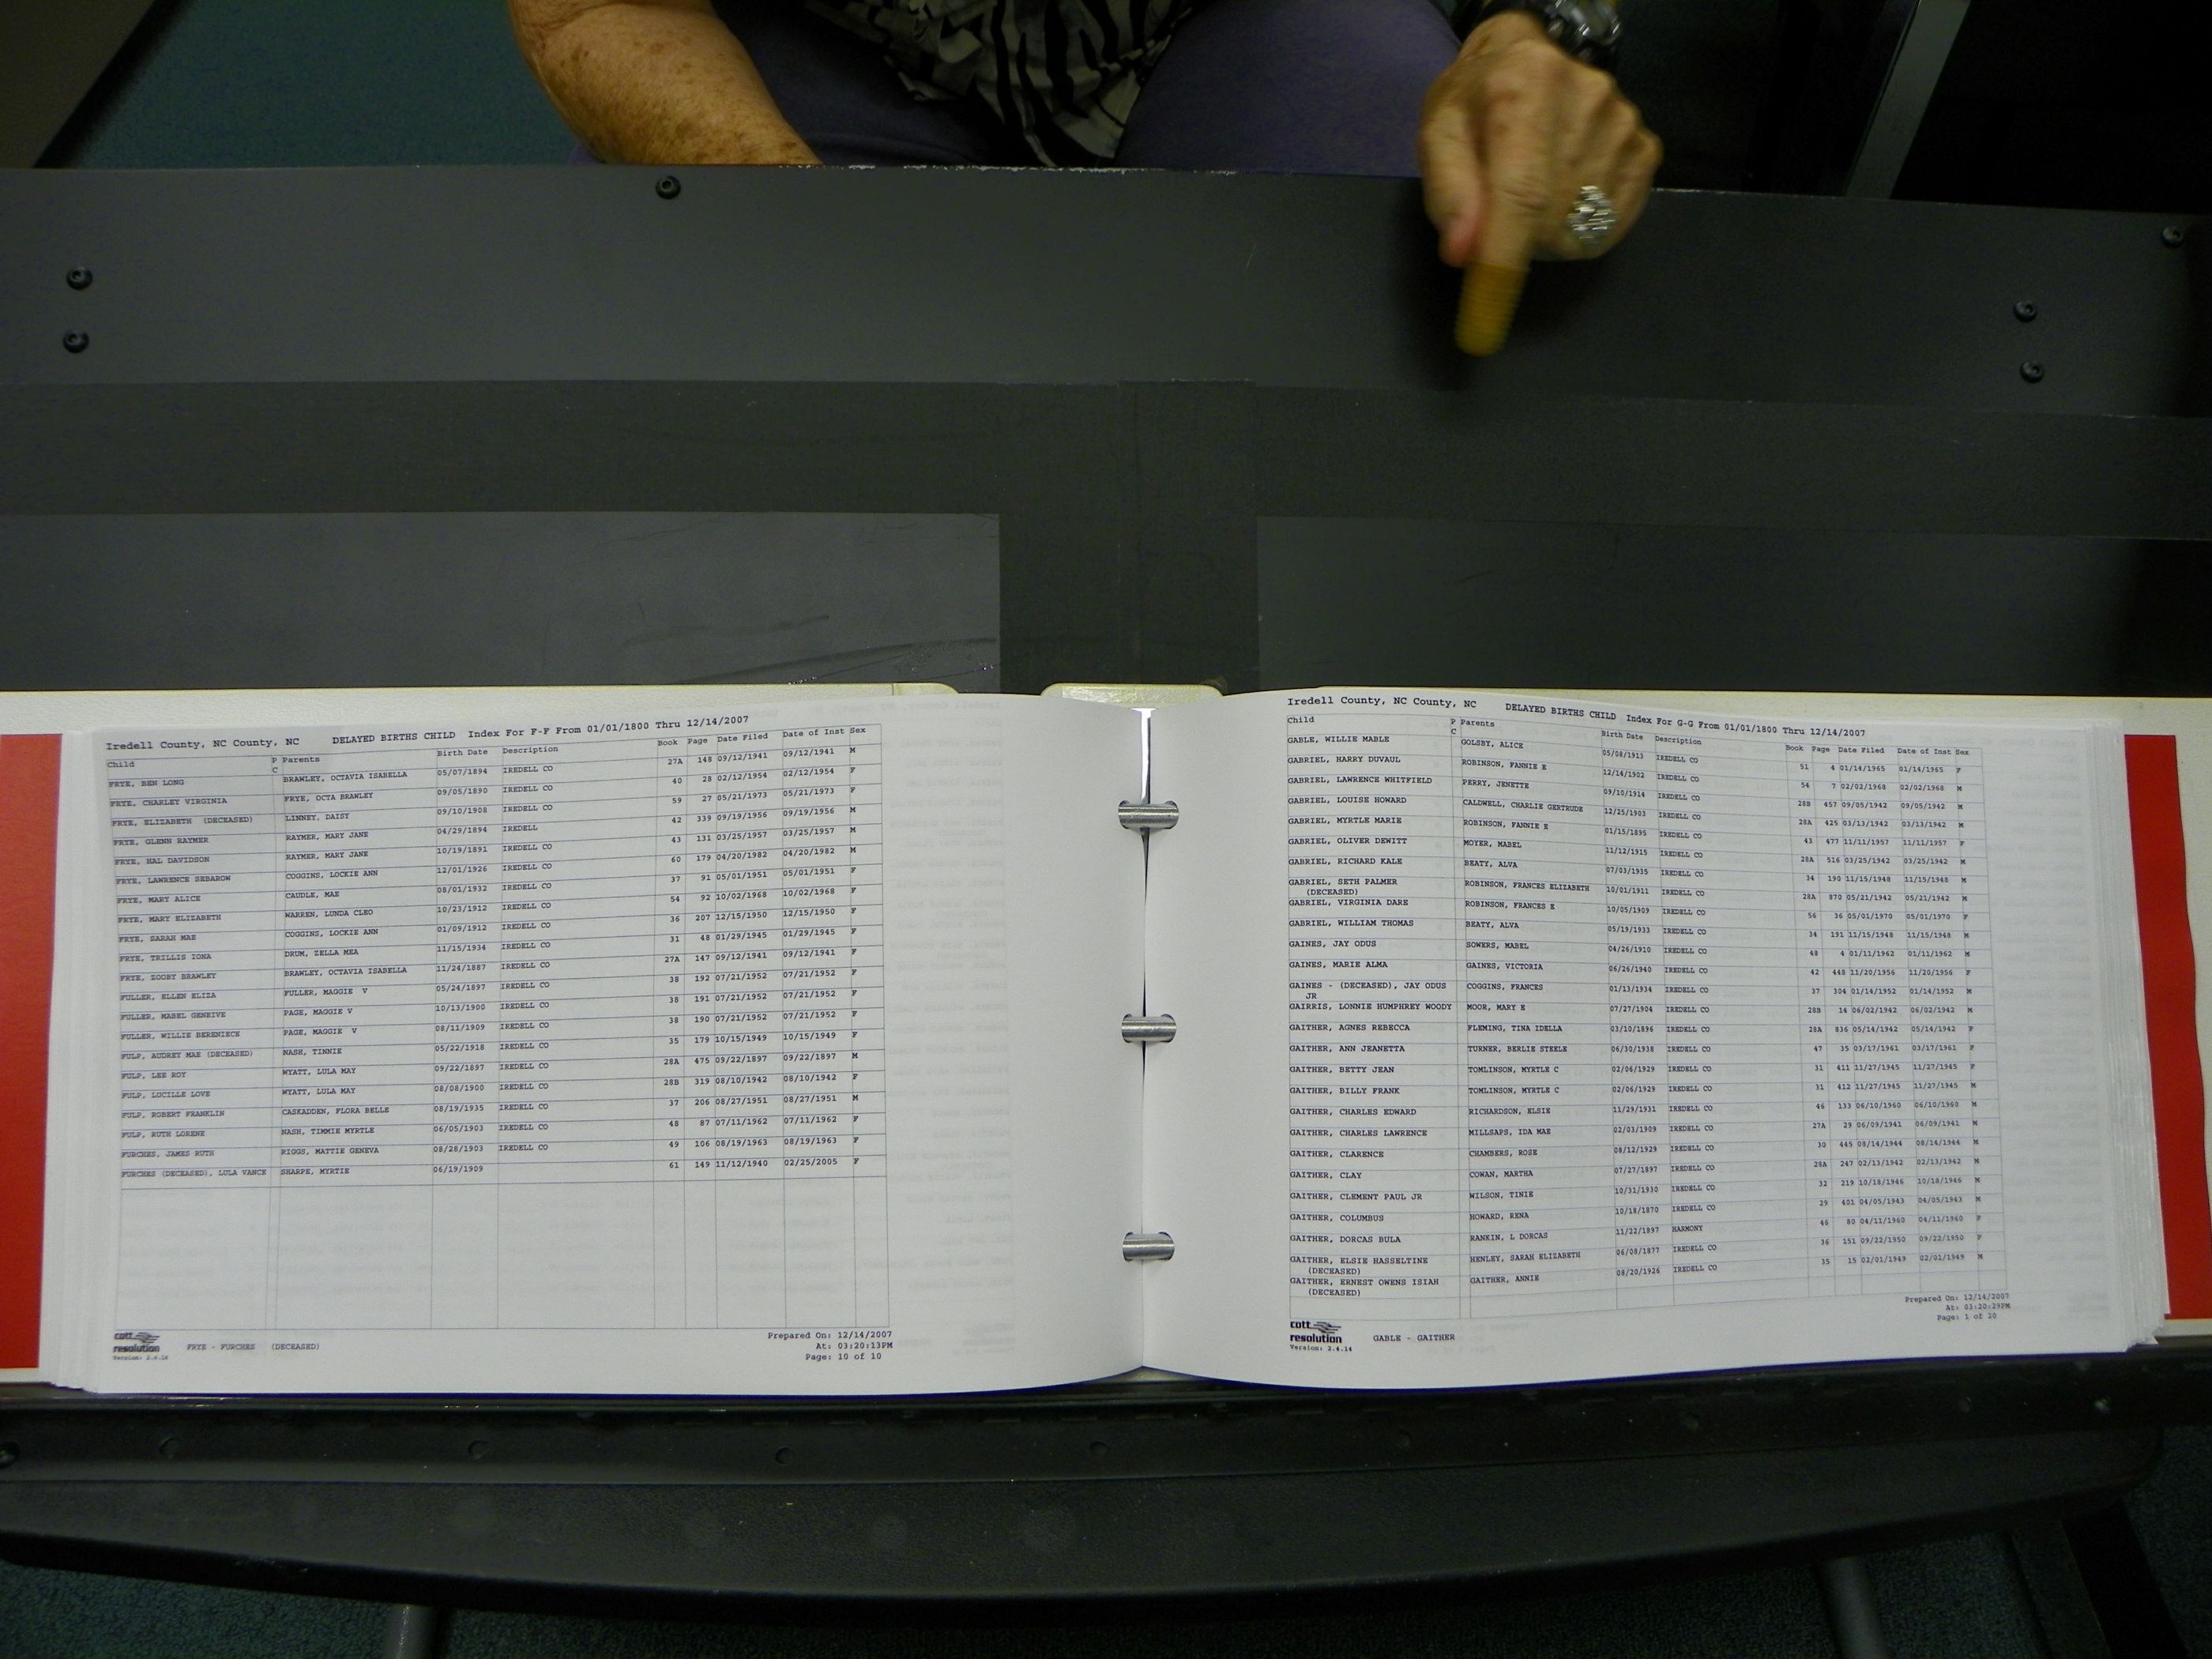 Iredell County, NC County, NC DELAYED BIRTHS CHILD Index For F-F From 01/01/1800 Thru 12/14/2007
Child P C Parents Birth Date Description Book Page Date Filed Date of Inst Sex
FRYE, BEN LONG BRAWLEY, OCTAVIA ISABELLA 05/07/1894 IREDELL CO 27A 148 09/12/1941 09/12/1941 M
FRYE, CHARLEY VIRGINIA FRYE, OCTA BRAWLEY 09/05/1890 IREDELL CO 40 28 02/12/1954 02/12/1954 F
FRYE, ELIZABETH (DECEASED) LINNEY, DAISY 09/10/1908 IREDELL CO 59 27 05/21/1973 05/21/1973 F
FRYE, GLENN RAYMER RAYMER, MARY JANE 04/29/1894 IREDELL 42 339 09/19/1956 09/19/1956 M
FRYE, HAL DAVIDSON RAYMER, MARY JANE 10/19/1891 IREDELL CO 43 131 03/25/1957 03/25/1957 M
FRYE, LAWRENCE SEBAROW COGGINS, LOCKIE ANN 12/01/1926 IREDELL CO 60 179 04/20/1982 04/20/1982 M
FRYE, MARY ALICE CAUDLE, MAE 08/01/1932 IREDELL CO 37 91 05/01/1951 05/01/1951 F
FRYE, MARY ELIZABETH WARREN, LUNDA CLEO 10/23/1912 IREDELL CO 54 92 10/02/1968 10/02/1968 F
FRYE, SARAH MAE COGGINS, LOCKIE ANN 01/09/1912 IREDELL CO 36 207 12/15/1950 12/15/1950 F
FRYE, TRILLIS IONA DRUM, ZELLA MEA 11/15/1934 IREDELL CO 31 48 01/29/1945 01/29/1945 F
FRYE, ZOOBY BRAWLEY BRAWLEY, OCTAVIA ISABELLA 11/24/1887 IREDELL CO 27A 147 09/12/1941 09/12/1941 F
FULLER, ELLEN ELIZA FULLER, MAGGIE V 05/24/1897 IREDELL CO 38 192 07/21/1952 07/21/1952 F
FULLER, MABEL GENEIVE PAGE, MAGGIE V 10/13/1900 IREDELL CO 38 191 07/21/1952 07/21/1952 F
FULLER, WILLIE BERENIECE PAGE, MAGGIE V 08/11/1909 IREDELL CO 38 190 07/21/1952 07/21/1952 F
FULP, AUDREY MAE (DECEASED) NASH, TINNIE 05/22/1918 IREDELL CO 35 179 10/15/1949 10/15/1949 F
FULP, LEE ROY WYATT, LULA MAY 09/22/1897 IREDELL CO 28A 475 09/22/1897 09/22/1897 M
FULP, LUCILLE LOVE WYATT, LULA MAY 08/08/1900 IREDELL CO 28B 319 08/10/1942 08/10/1942 F
FULP, ROBERT FRANKLIN CASKADDEN, FLORA BELLE 08/19/1935 IREDELL CO 37 206 08/27/1951 08/27/1951 M
FULP, RUTH LORENE NASH, TIMMIE MYRTLE 06/05/1903 IREDELL CO 48 87 07/11/1962 07/11/1962 F
FURCHES, JAMES RUTH RIGGS, MATTIE GENEVA 08/28/1903 IREDELL CO 49 106 08/19/1963 08/19/1963 F
FURCHES (DECEASED), LULA VANCE SHARPE, MYRTIE 06/19/1909 61 149 11/12/1940 02/25/2005 F
cott resolution
Version: 2.4.14
FRYE - FURCHES (DECEASED)
Prepared On: 12/14/2007
At: 03:20:13PM
Page: 10 of 10
Iredell County, NC County, NC DELAYED BIRTHS CHILD Index For G-G From 01/01/1800 Thru 12/14/2007
Child P C Parents Birth Date Description Book Page Date Filed Date of Inst Sex
GABLE, WILLIE MABLE GOLSBY, ALICE 05/08/1913 IREDELL CO 51 4 01/14/1965 01/14/1965 F
GABRIEL, HARRY DUVAUL ROBINSON, FANNIE E 12/14/1902 IREDELL CO 54 7 02/02/1968 02/02/1968 M
GABRIEL, LAWRENCE WHITFIELD PERRY, JENETTE 09/10/1914 IREDELL CO 28B 457 09/05/1942 09/05/1942 M
GABRIEL, LOUISE HOWARD CALDWELL, CHARLIE GERTRUDE 12/25/1903 IREDELL CO 28A 425 03/13/1942 03/13/1942 M
GABRIEL, MYRTLE MARIE ROBINSON, FANNIE E 01/15/1895 IREDELL CO 43 477 11/11/1957 11/11/1957 F
GABRIEL, OLIVER DEWITT MOYER, MABEL 11/12/1915 IREDELL CO 28A 516 03/25/1942 03/25/1942 M
GABRIEL, RICHARD KALE BEATY, ALVA 07/03/1935 IREDELL CO 34 190 11/15/1948 11/15/1948 M
GABRIEL, SETH PALMER ROBINSON, FRANCES ELIZABETH 10/01/1911 IREDELL CO 28A 870 05/21/1942 05/21/1942 M
(DECEASED)
GABRIEL, VIRGINIA DARE ROBINSON, FRANCES E 10/05/1909 IREDELL CO 56 36 05/01/1970 05/01/1970 F
GABRIEL, WILLIAM THOMAS BEATY, ALVA 05/19/1933 IREDELL CO 34 191 11/15/1948 11/15/1948 M
GAINES, JAY ODUS SOWERS, MABEL 04/26/1910 IREDELL CO 48 4 01/11/1962 01/11/1962 M
GAINES, MARIE ALMA GAINES, VICTORIA 06/26/1940 IREDELL CO 42 448 11/20/1956 11/20/1956 F
GAINES - (DECEASED), JAY ODUS COGGINS, FRANCES 01/13/1934 IREDELL CO 37 304 01/14/1952 01/14/1952 M
JR
GAIRRIS, LONNIE HUMPHREY WOODY MOOR, MARY E 07/27/1904 IREDELL CO 28B 14 06/02/1942 06/02/1942 M
GAITHER, AGNES REBECCA FLEMING, TINA IDELLA 03/10/1896 IREDELL CO 28A 836 05/14/1942 05/14/1942 F
GAITHER, ANN JEANETTA TURNER, BERLIE STEELE 06/30/1938 IREDELL CO 47 35 03/17/1961 03/17/1961 F
GAITHER, BETTY JEAN TOMLINSON, MYRTLE C 02/06/1929 IREDELL CO 31 411 11/27/1945 11/27/1945 F
GAITHER, BILLY FRANK TOMLINSON, MYRTLE C 02/06/1929 IREDELL CO 31 412 11/27/1945 11/27/1945 M
GAITHER, CHARLES EDWARD RICHARDSON, ELSIE 11/29/1931 IREDELL CO 46 133 06/10/1960 06/10/1960 M
GAITHER, CHARLES LAWRENCE MILLSAPS, IDA MAE 02/03/1909 IREDELL CO 27A 29 06/09/1941 06/09/1941 M
GAITHER, CLARENCE CHAMBERS, ROSE 08/12/1929 IREDELL CO 30 445 08/14/1944 08/14/1944 M
GAITHER, CLAY COWAN, MARTHA 07/27/1897 IREDELL CO 28A 247 02/13/1942 02/13/1942 M
GAITHER, CLEMENT PAUL JR WILSON, TINIE 10/31/1930 IREDELL CO 32 219 10/18/1946 10/18/1946 M
GAITHER, COLUMBUS HOWARD, RENA 10/18/1870 IREDELL CO 29 401 04/05/1943 04/05/1943 M
GAITHER, DORCAS BULA RANKIN, L DORCAS 11/22/1897 HARMONY 46 80 04/11/1960 04/11/1960 F
GAITHER, ELSIE HASSELTINE HENLEY, SARAH ELIZABETH 06/08/1877 IREDELL CO 36 151 09/22/1950 09/22/1950 F
(DECEASED)
GAITHER, ERNEST OWENS ISIAH GAITHER, ANNIE 08/20/1926 IREDELL CO 35 15 02/01/1949 02/01/1949 M
(DECEASED)
cott resolution
Version: 2.4.14
GABLE - GAITHER
Prepared On: 12/14/2007
At: 03:20:29PM
Page: 1 of 20